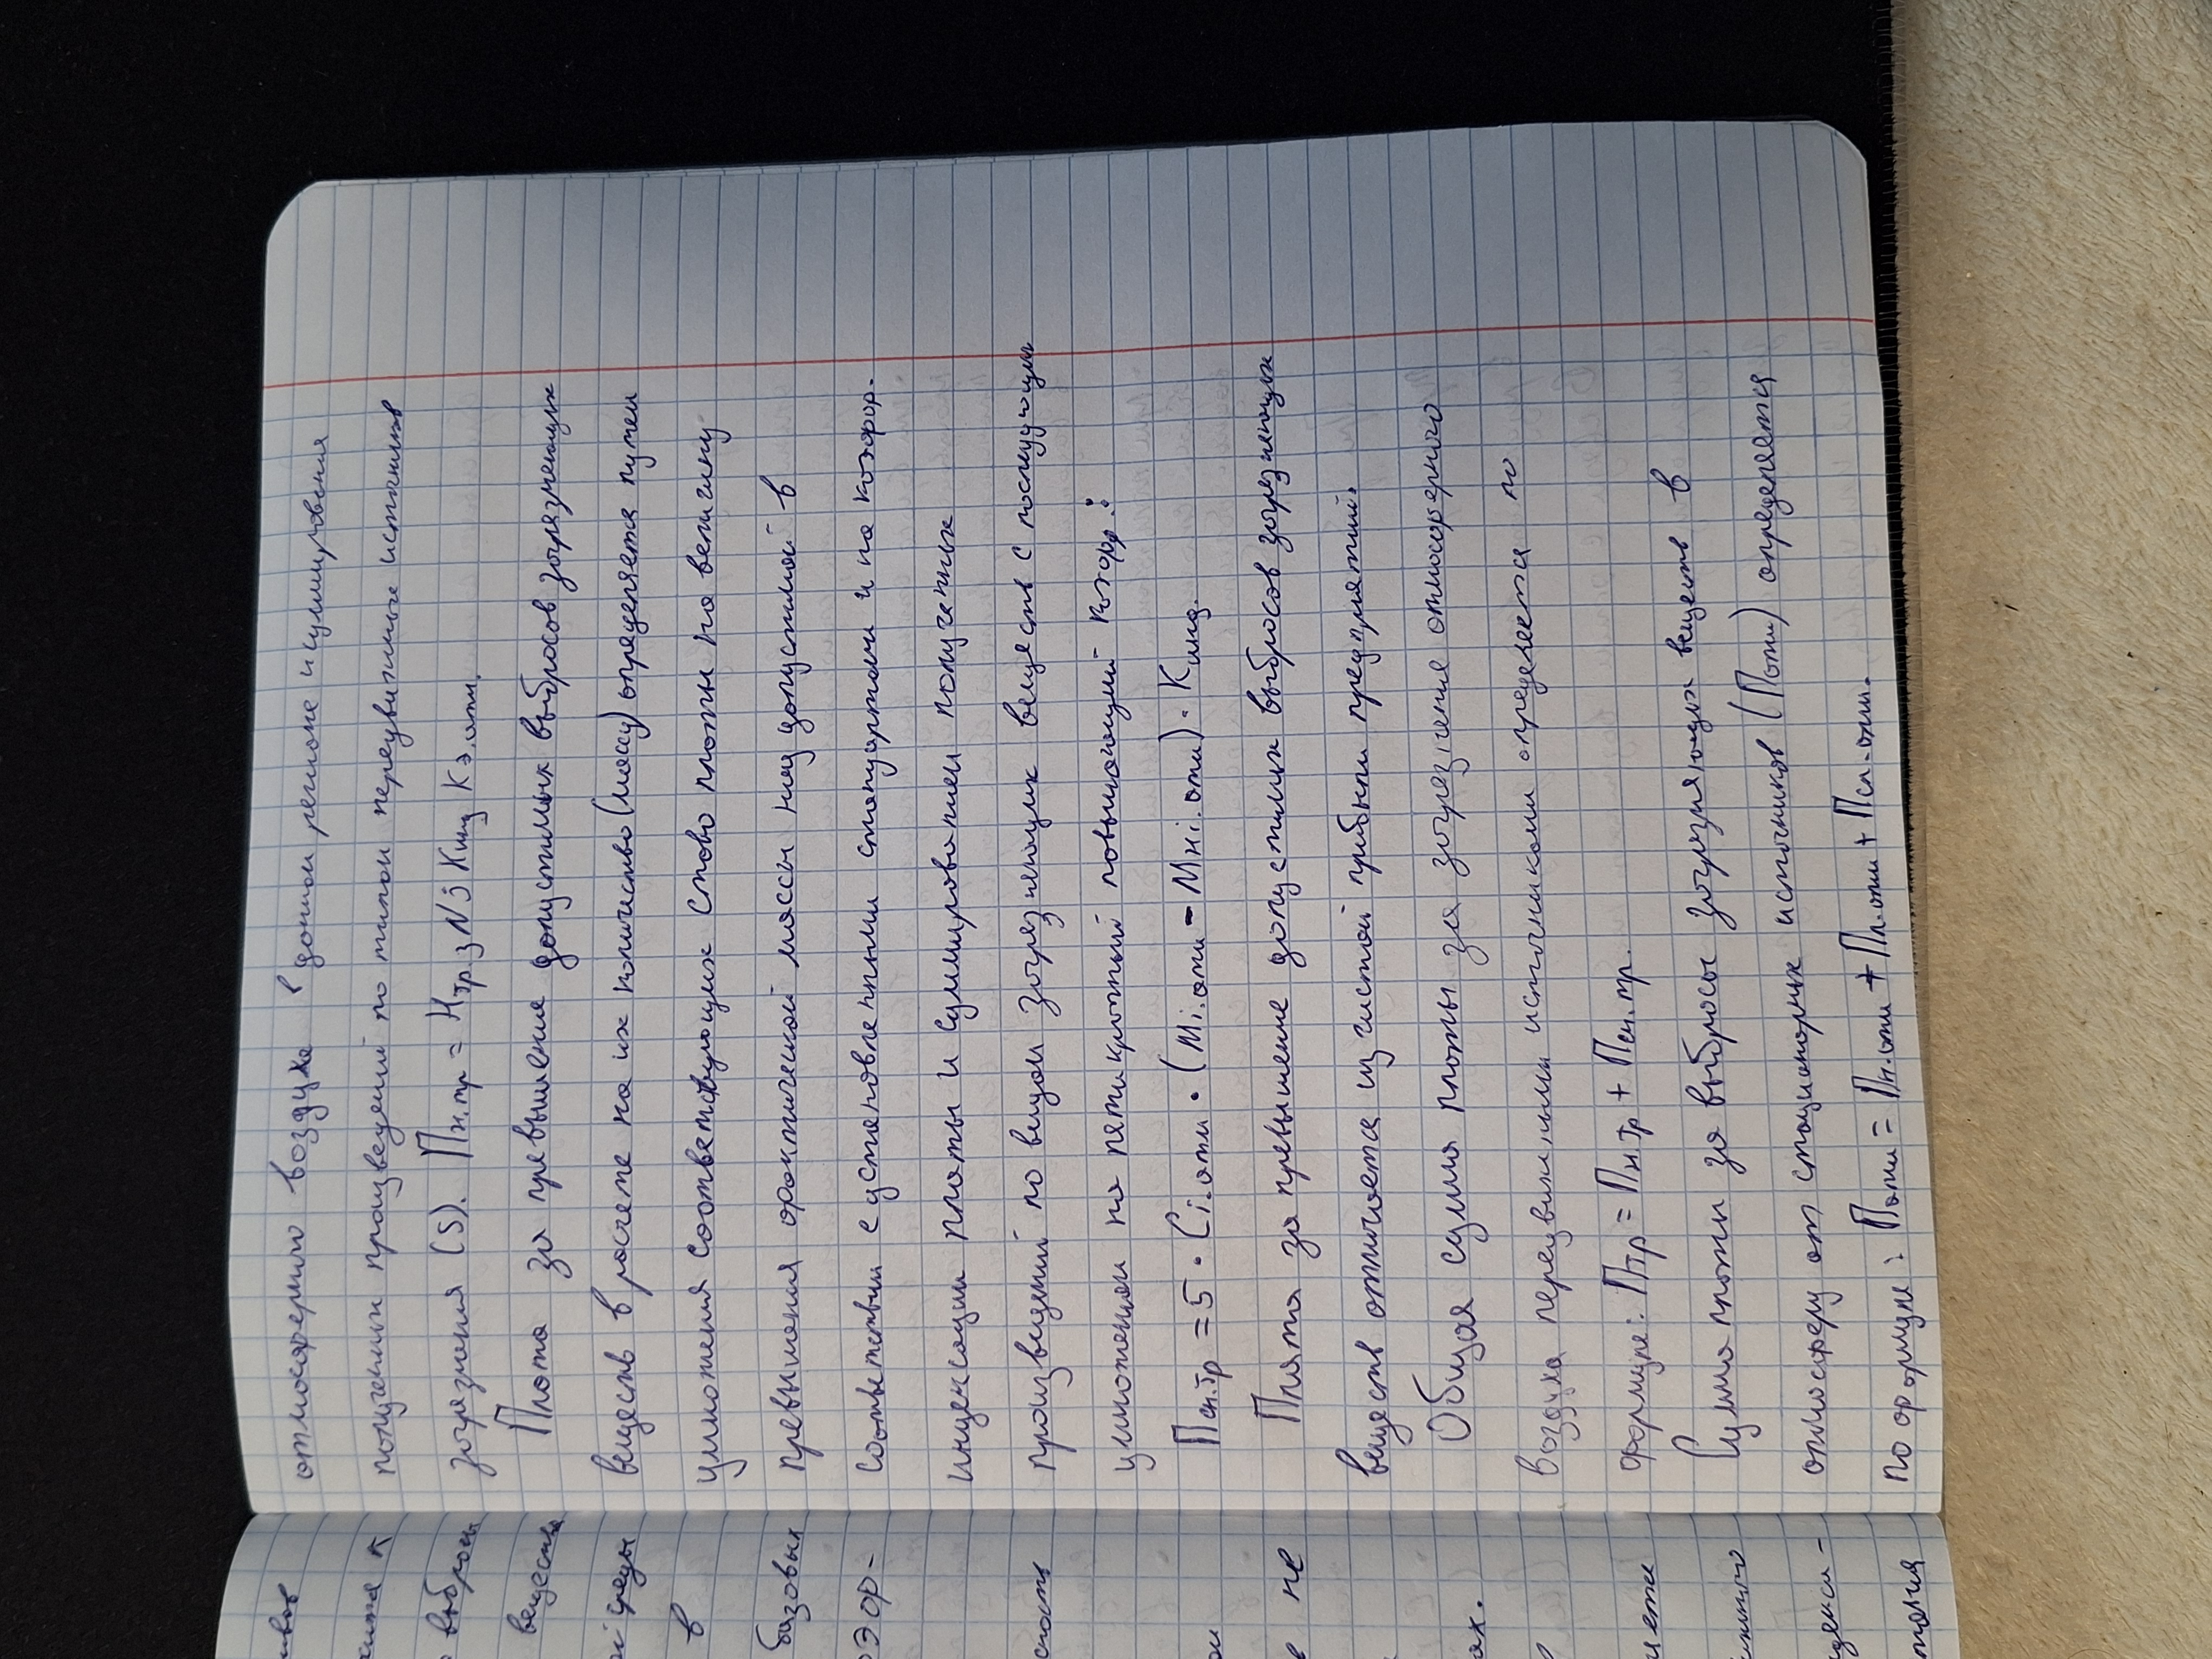 атмосферного воздуха в данном регионе и суммирования
полученных произведений по типам передвижных источников
загрязнения (S). Пн.тр = Нтр.з Nj Kинд Кэ.атм.
Плата за превышение допустимых выбросов загрязняющих
веществ в расчете на их количество (массу) определяется путем
умножения соответствующих ставо платы на величину
превышения фактической массы над допустимой в
соответствии с установленными стандартами и на коэфф.
индексации платы и суммированием полученных
произведений по видам загрязняющих веществ с последующим
умножением на пятикратный повышающий коэфф.:
Псн.тр = 5 · Сi.атм · (Мi.атм - Мнi.атм) · Кинд.
Плата за превышение допустимых выбросов загрязняющих
веществ отличается из чистой прибыли предприятий.
Общая сумма платы за загрязнение атмосферного
воздуха передвижными источниками определяется по
формуле: Птр = Пн.тр + Псн.тр.
Сумма платы за выбросы загрязняющих веществ в
атмосферу от стационарных источников (Патм) определяется
по формуле: Патм = Пн.атм + Пл.атм + Псл.атм.
ивов
выбросы
вещества
й среды
в
базовых
оэф-
не
ах.